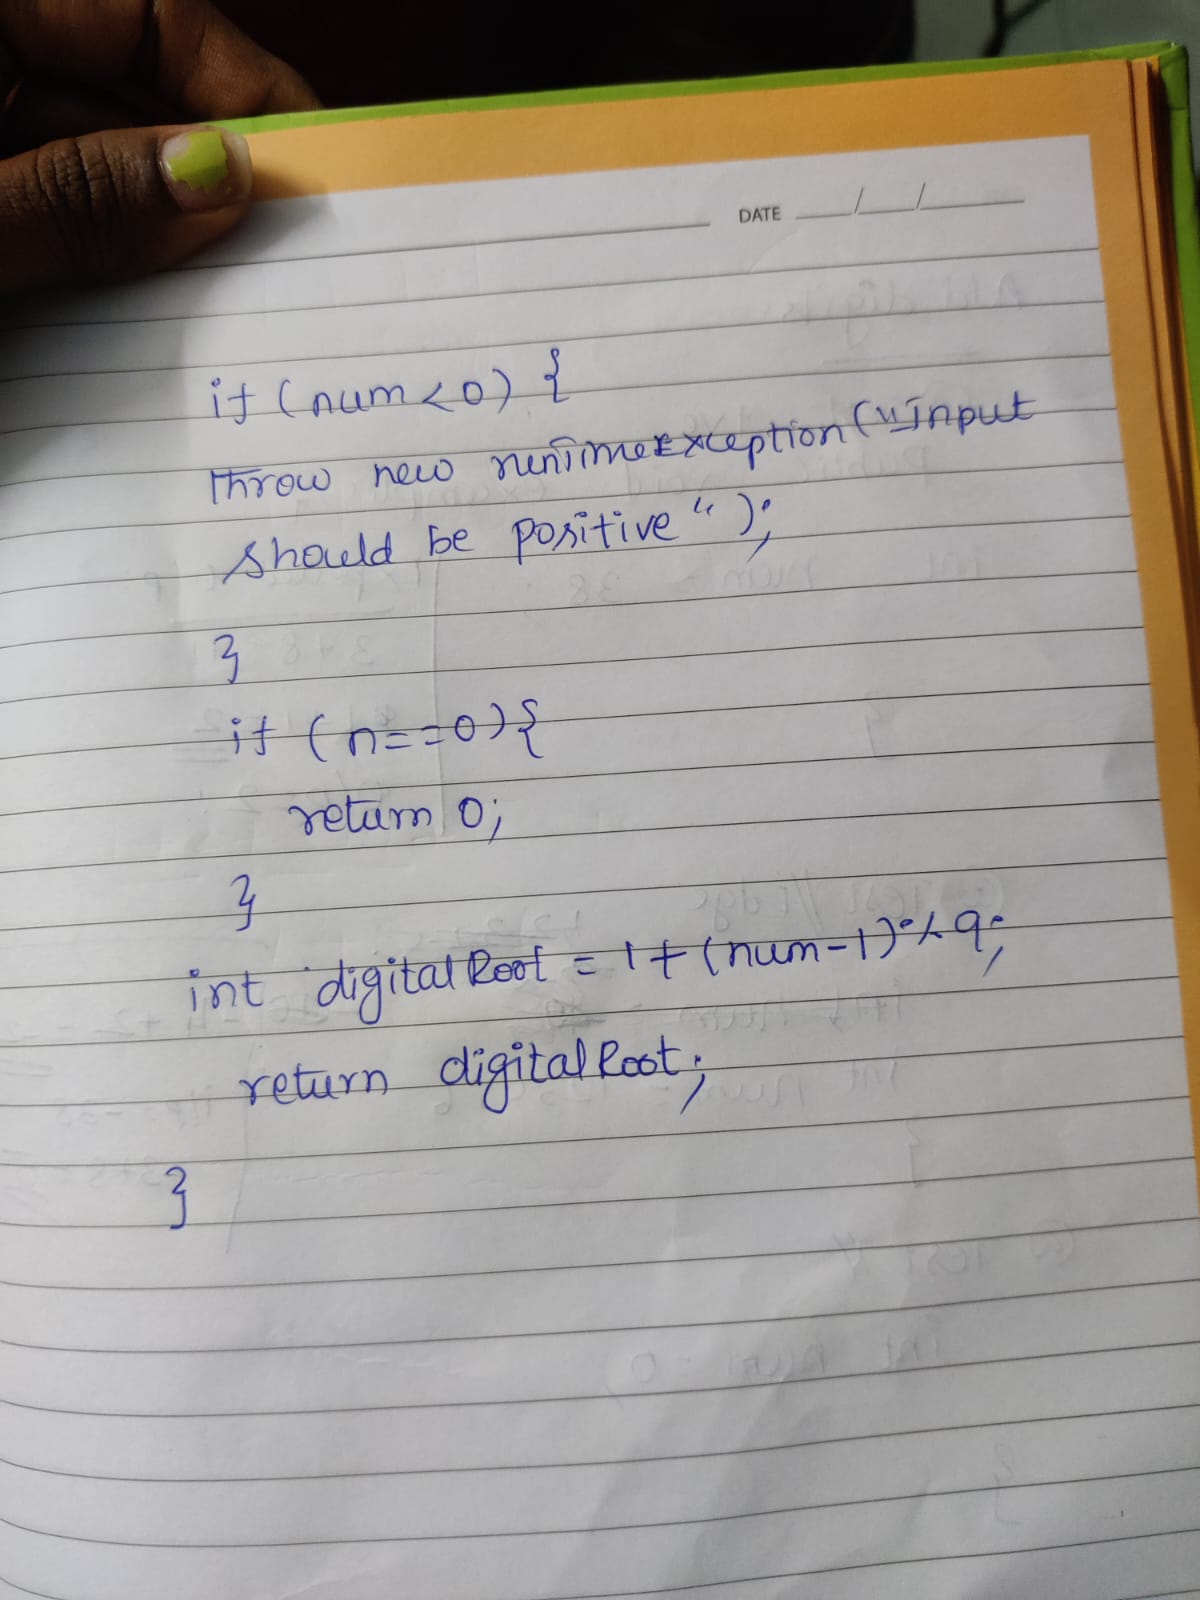 DATE
if (num<0) {
Throw new runTimeException("Input
should be positive");
}
if (n==0){
return 0;
}
int digitalRoot = 1+(num-1)%9;
return digitalRoot;
}